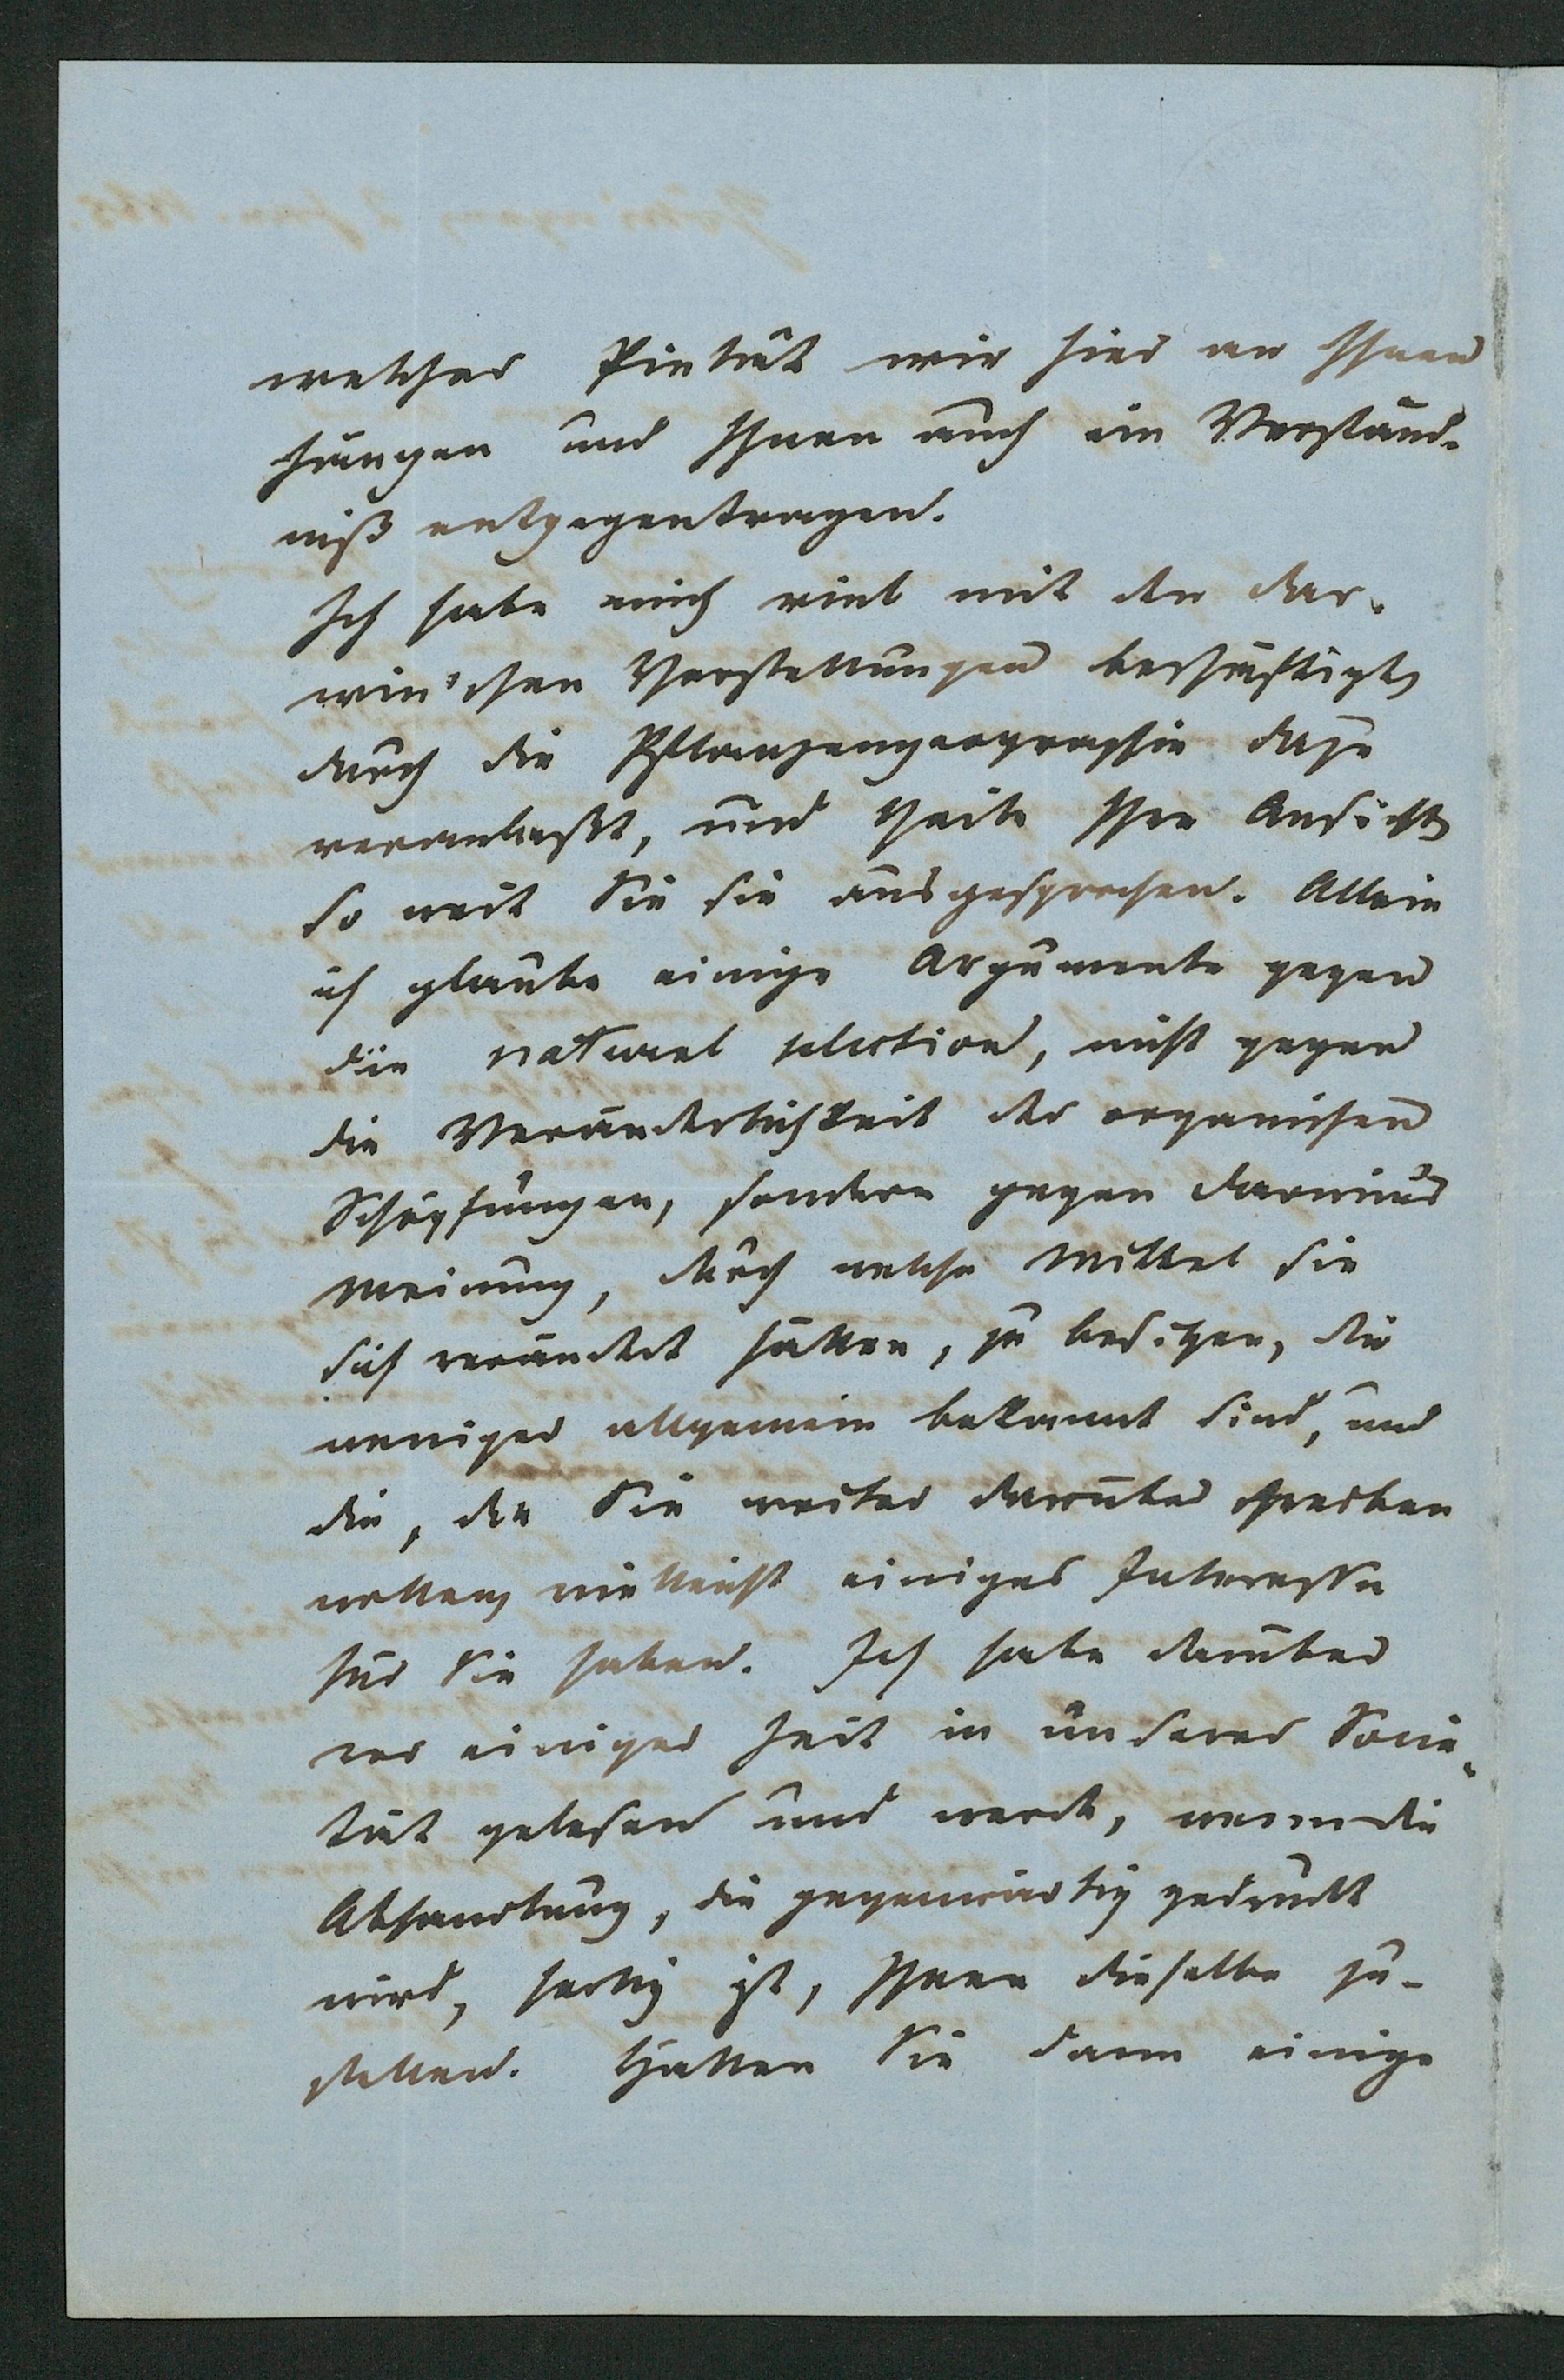 welcher Pietät wir hier an Ihnen
hängen und Ihnen auch ein Verständ-
niß entgegentragen.
Ich habe mich viel mit den Dar-
win'schen Vorstellungen beschäftigt,
durch die Pflanzengeographie dazu
veranlaßt, und theile Ihre Ansicht,
so weit Sie sie ausgesprochen. Allein
ich glaube einige Argumente gegen
die natural selection, nicht gegen
die Veränderlichkeit der organischen
Schöpfungen, sondern gegen Darwin's
Meinung, durch welche Mittel sie
sich verändert hätten, zu besitzen, die
weniger allgemein bekannt sind, und
die, da Sie weiter darüber schreiben
wollen, vielleicht einiges Interesse
für Sie haben. Ich habe darüber
vor einiger Zeit in unserer Socie-
tät gelesen und werde, wenn die
Abhandlung, die gegenwärtig gedruckt
wird, fertig ist, Ihnen dieselbe zu-
stellen. Hätten Sie dann einige